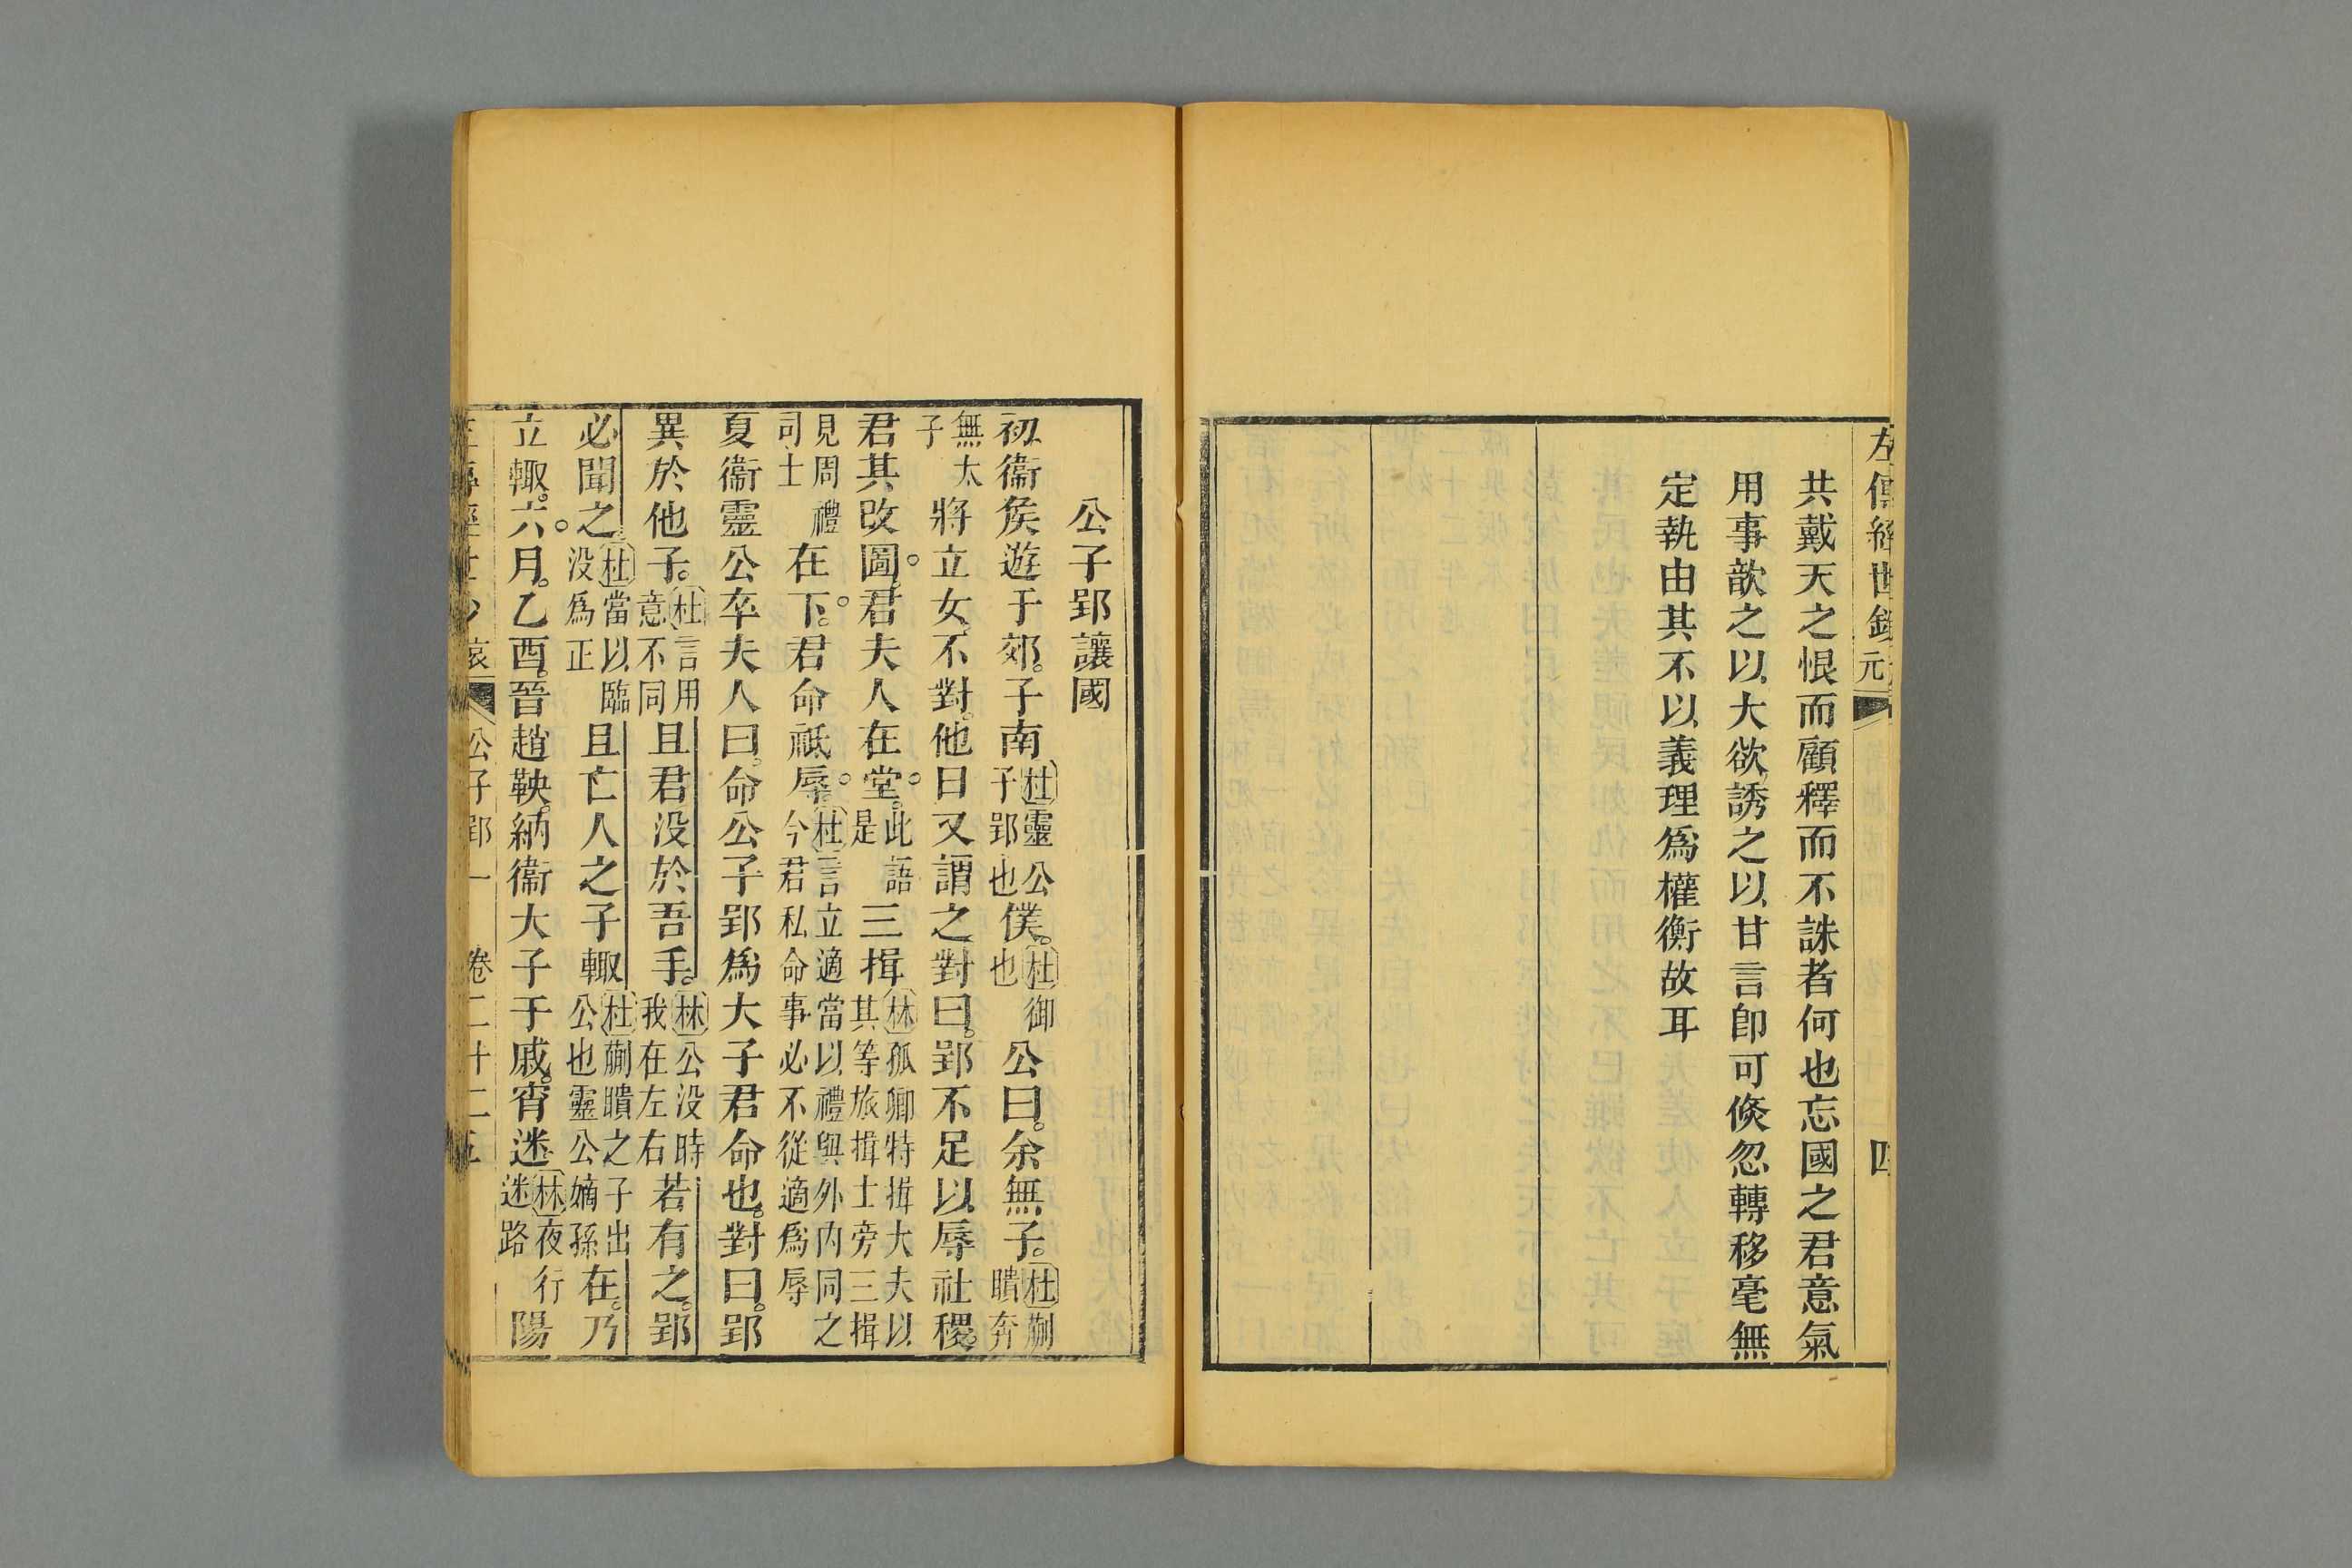 左傳經世鈔 元 四
共戴天之恨而顧釋而不誅者何也忘國之君意氣
用事歆之以大欲誘之以甘言卽可倐忽轉移毫無
定執由其不以義理爲權衡故耳
公子郢讓國
初衞侯遊于郊子南杜靈公子郢也僕杜御也公曰余無子杜蒯聵奔
無太子將立女不對他日又謂之對曰郢不足以辱社稷
君其改圖君夫人在堂此語是三揖林孤卿特揖大夫以其等旅揖士旁三揖
見周禮司士在下君命祗辱杜言立適當以禮與外內同之今君私命事必不從適爲辱
夏衞靈公卒夫人曰命公子郢爲大子君命也對曰郢
異於他子杜言用意不同且君没於吾手林公没時我在左右若有之郢
必聞之杜當以臨没爲正且亡人之子輙杜蒯聵之子出公也靈公嫡孫在乃
立輙六月乙酉晉趙鞅納衞大子于戚宵迷林夜行迷路陽
公子郢一 卷二十二 五